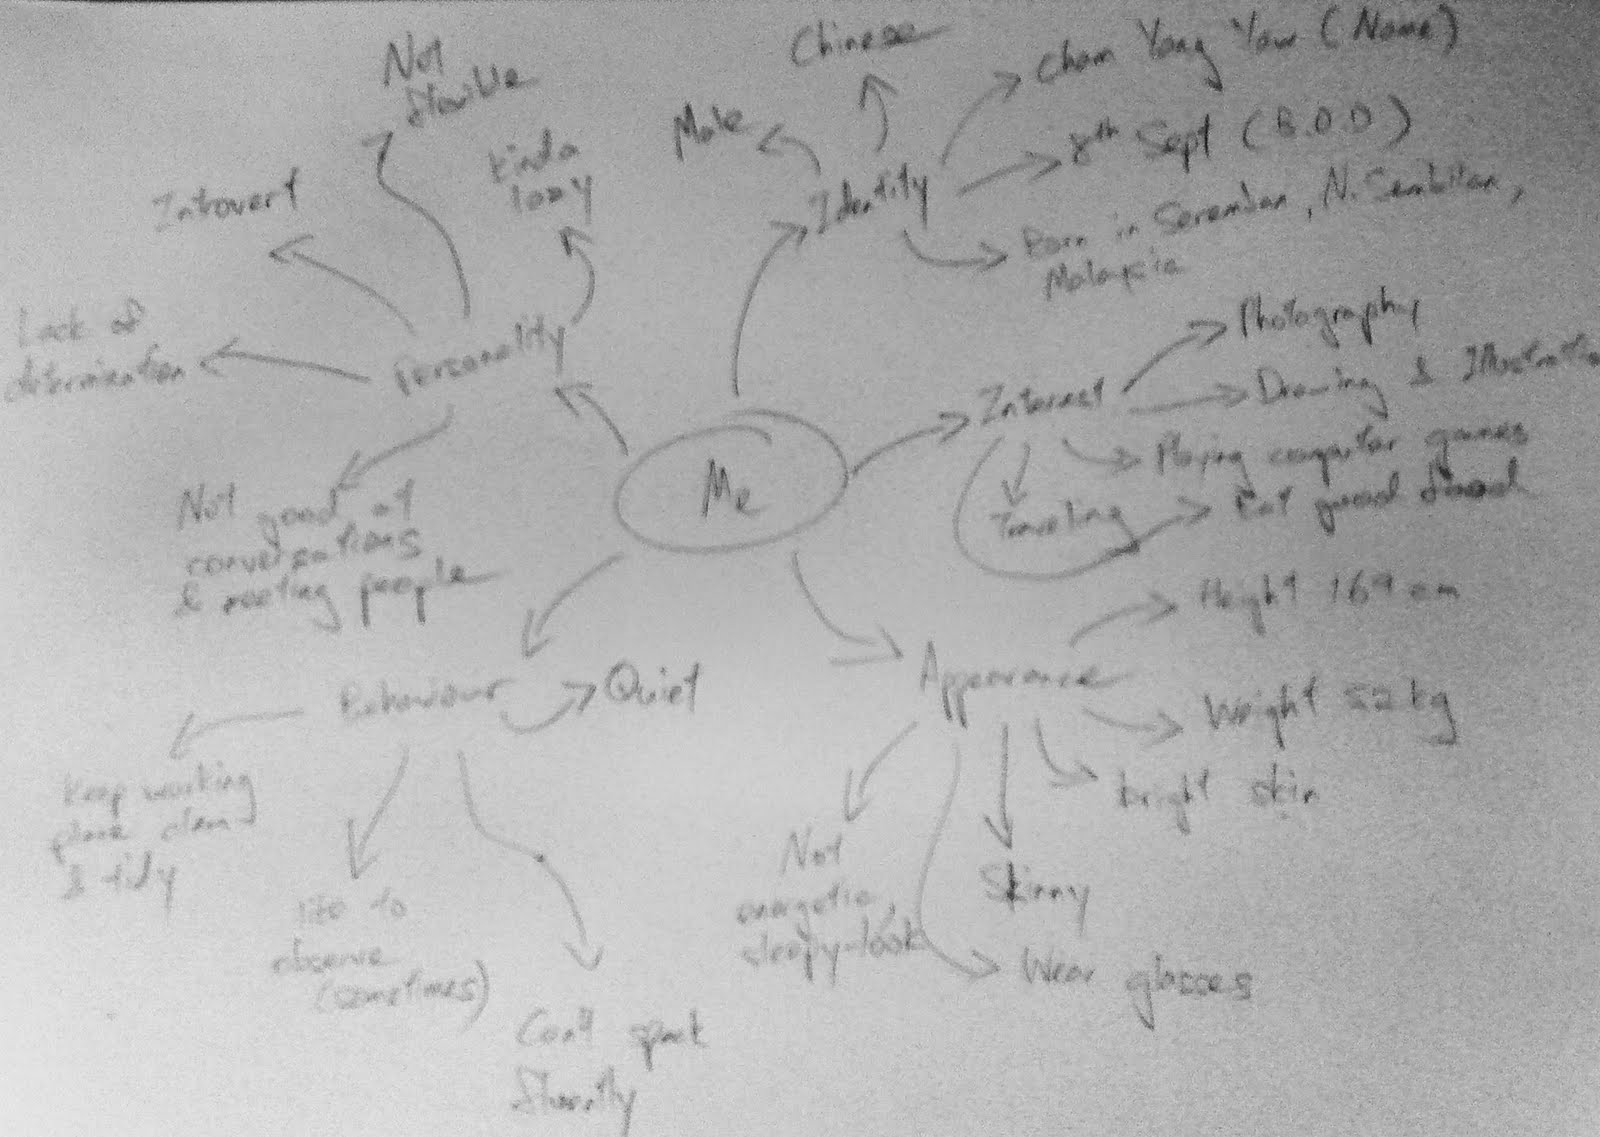 Me
Identity
Male
Chinese
Cham Yang Yaw (Name)
8th Sept (B.O.D)
Born in Seremban, N. Sembilan,
Malaysia
Interest
Photography
Drawing & Illustration
Playing computer games
Eat good food
Traveling
Appearance
Height 169 cm
Weight 52 kg
bright skin
Skinny
Wear glasses
Not
energetic,
sleepy-look
Behaviour
Quiet
Can't speak
fluently
like to
observe
(sometimes)
Keep working
place clean
& tidy
Personality
kinda
lazy
Not
flexible
Introvert
Lack of
determination
Not good at
conversations
& meeting people